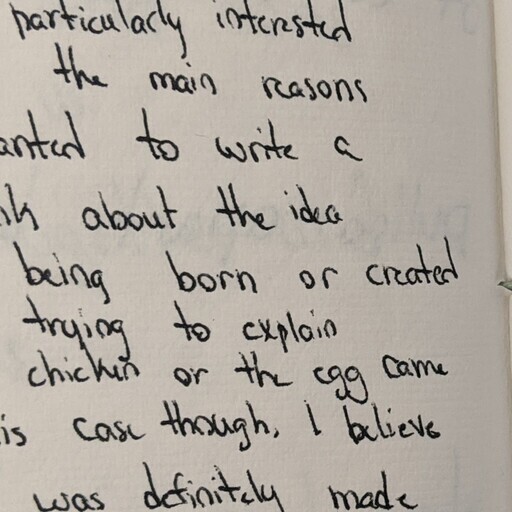 particularly interested
the main reasons
anted to write a
about the idea
being born or created
trying to explain
chicken or the egg came
is case though, I believe
was definitely made